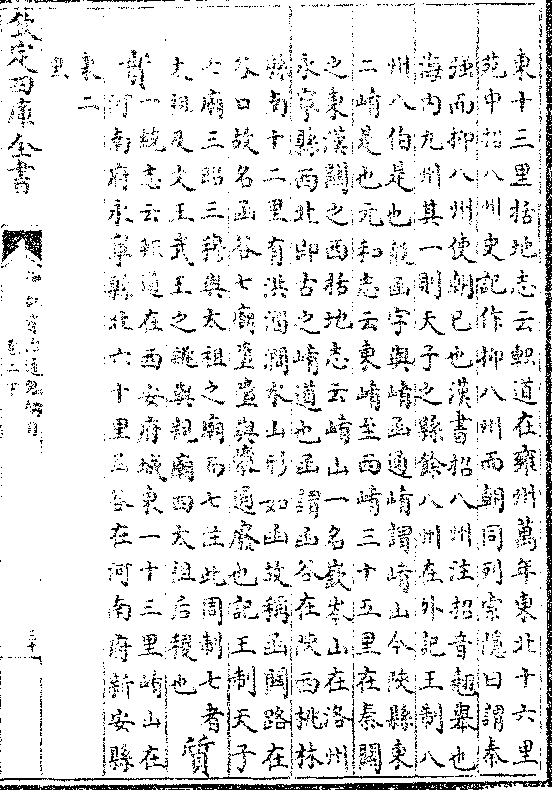 東十三里括地志云軹道在雍州萬年東北十六里
苑中招八州史記作抑八州而朝同列索隱曰謂秦
強而抑八州使朝已也漢書招八州注招音翹舉也
海内九州其一則天子之縣餘八州在外記王制八
州八伯是也殽函字與崤函通崤謂崤山今陜縣東
二崤是也元和志云東崤至西崤三十五里在秦關
之東漢關之西括地志云崤山一名嶔岑山在洛州
永寧縣西北即古之崤道也函謂函谷在陜西桃林
縣南十二里有洪溜澗水山形如函故稱函關路在
谷口故名函谷七廟墮墮與隳通廢也記王制天子
七廟三昭三穆與太祖之廟而七注此周制七者
太祖及文王武王之祧與親廟四太祖后稷也
質
實
一統志云軹道在西安府城東一十三里崤山在
河南府永寧縣北六十里函谷在河南府新安縣
東二
里
欽定四庫全書
資治通鑑綱目
卷二下